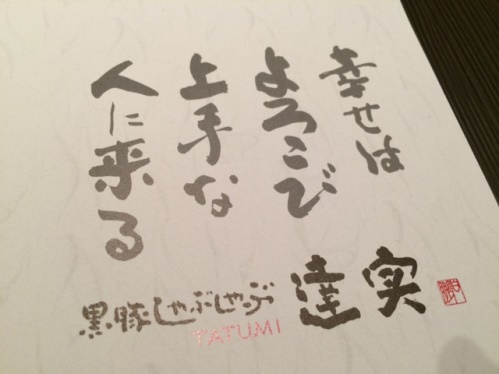 幸せは
よろこび
上手な
人に来る
黒豚しゃぶしゃぶ
TATUMI
達実